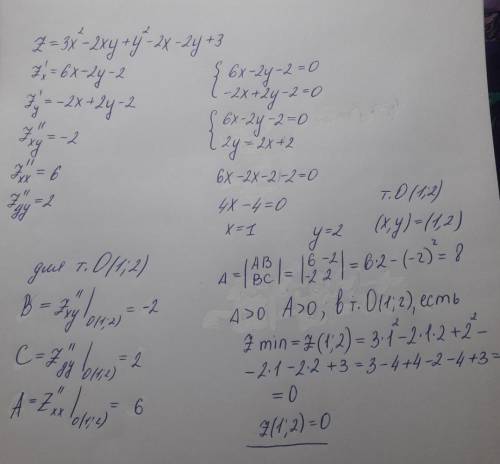 Z = 3x² - 2xy + y² - 2x - 2y + 3
Z'x = 6x - 2y - 2
Z'y = -2x + 2y - 2
Z''xy = -2
Z''xx = 6
Z''yy = 2
{ 6x - 2y - 2 = 0
-2x + 2y - 2 = 0
{ 6x - 2y - 2 = 0
2y = 2x + 2
6x - 2x - 2 - 2 = 0
4x - 4 = 0
x = 1 y = 2
т. O(1;2)
(x,y) = (1,2)
для т. O(1;2)
B = Z''xy |O(1;2) = -2
C = Z''yy |O(1;2) = 2
A = Z''xx |O(1;2) = 6
Δ = |AB BC| = |6 -2 -2 2| = 6·2 - (-2)² = 8
Δ>0 A>0, в т. O(1;2), есть
Z min = Z(1;2) = 3·1² - 2·1·2 + 2² -
- 2·1 - 2·2 + 3 = 3 - 4 + 4 - 2 - 4 + 3 =
= 0
Z(1;2) = 0